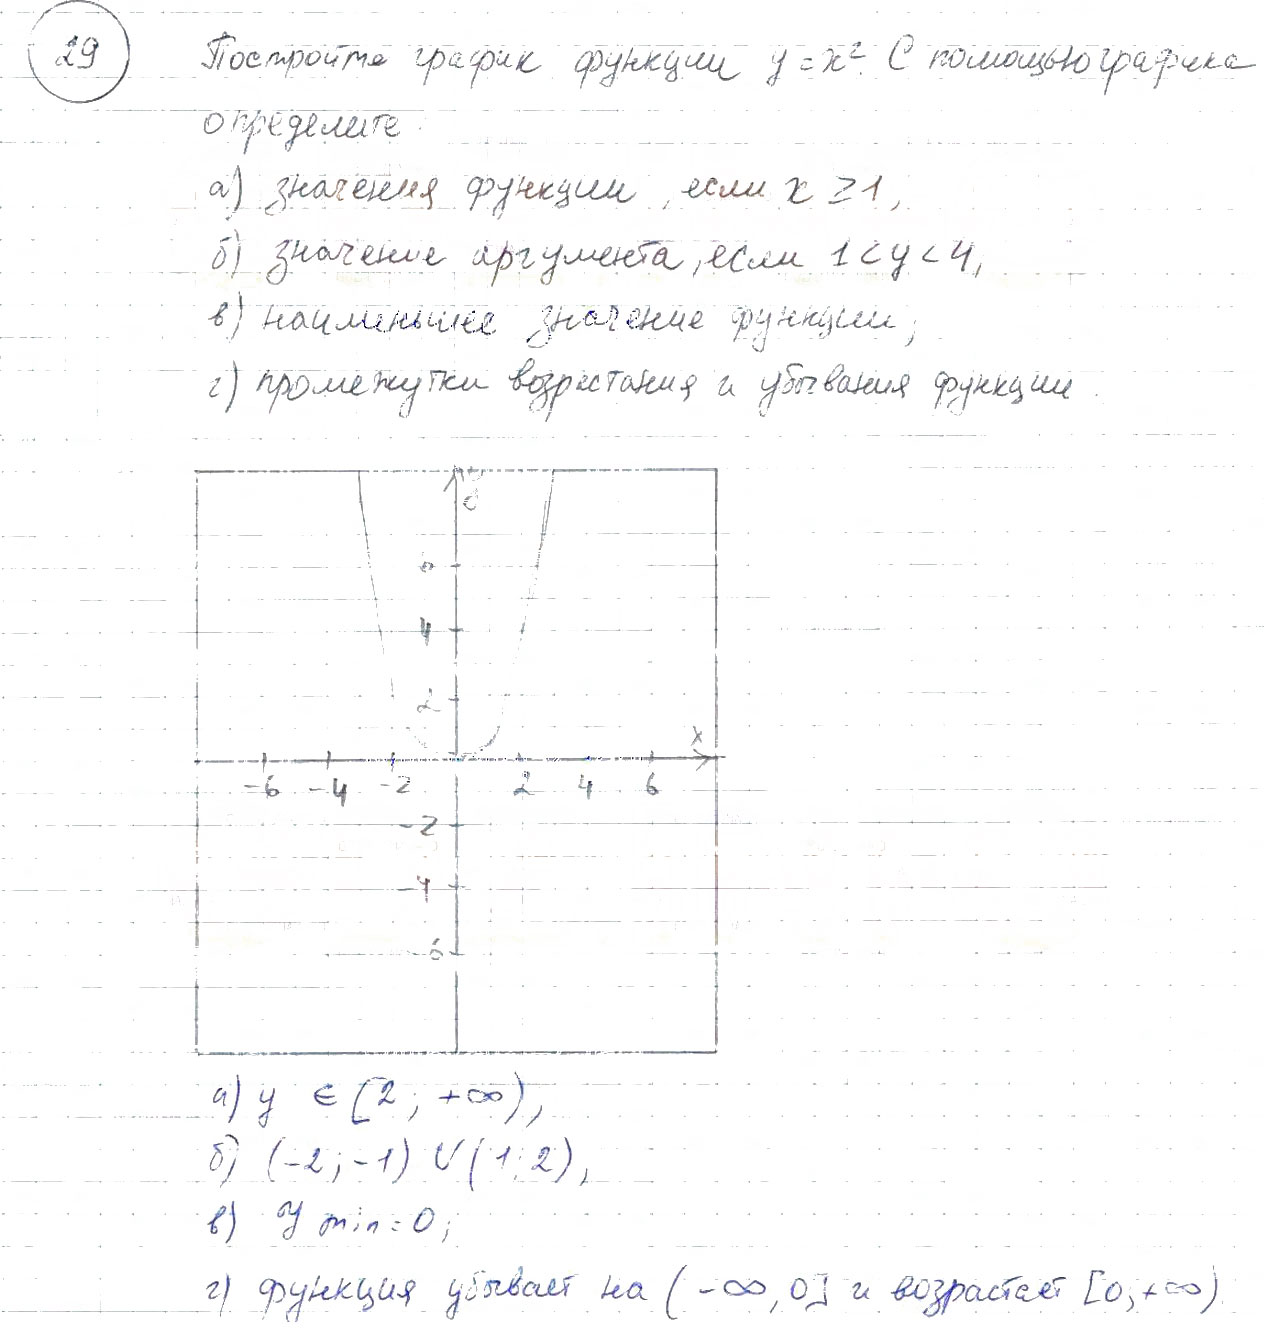 29
Постройте график функции y = x². С помощью графика
определите
а) значения функции, если x ≥ 1,
б) значение аргумента, если 1 < y < 4,
в) наименьшее значение функции;
г) промежутки возрастания и убывания функции.
y
6
4
2
x
-6 -4 -2 2 4 6
-2
-4
-6
а) y ∈ [2; +∞),
б) (-2; -1) ∪ (1; 2),
в) y min = 0;
г) функция убывает на (-∞, 0] и возрастает [0; +∞)